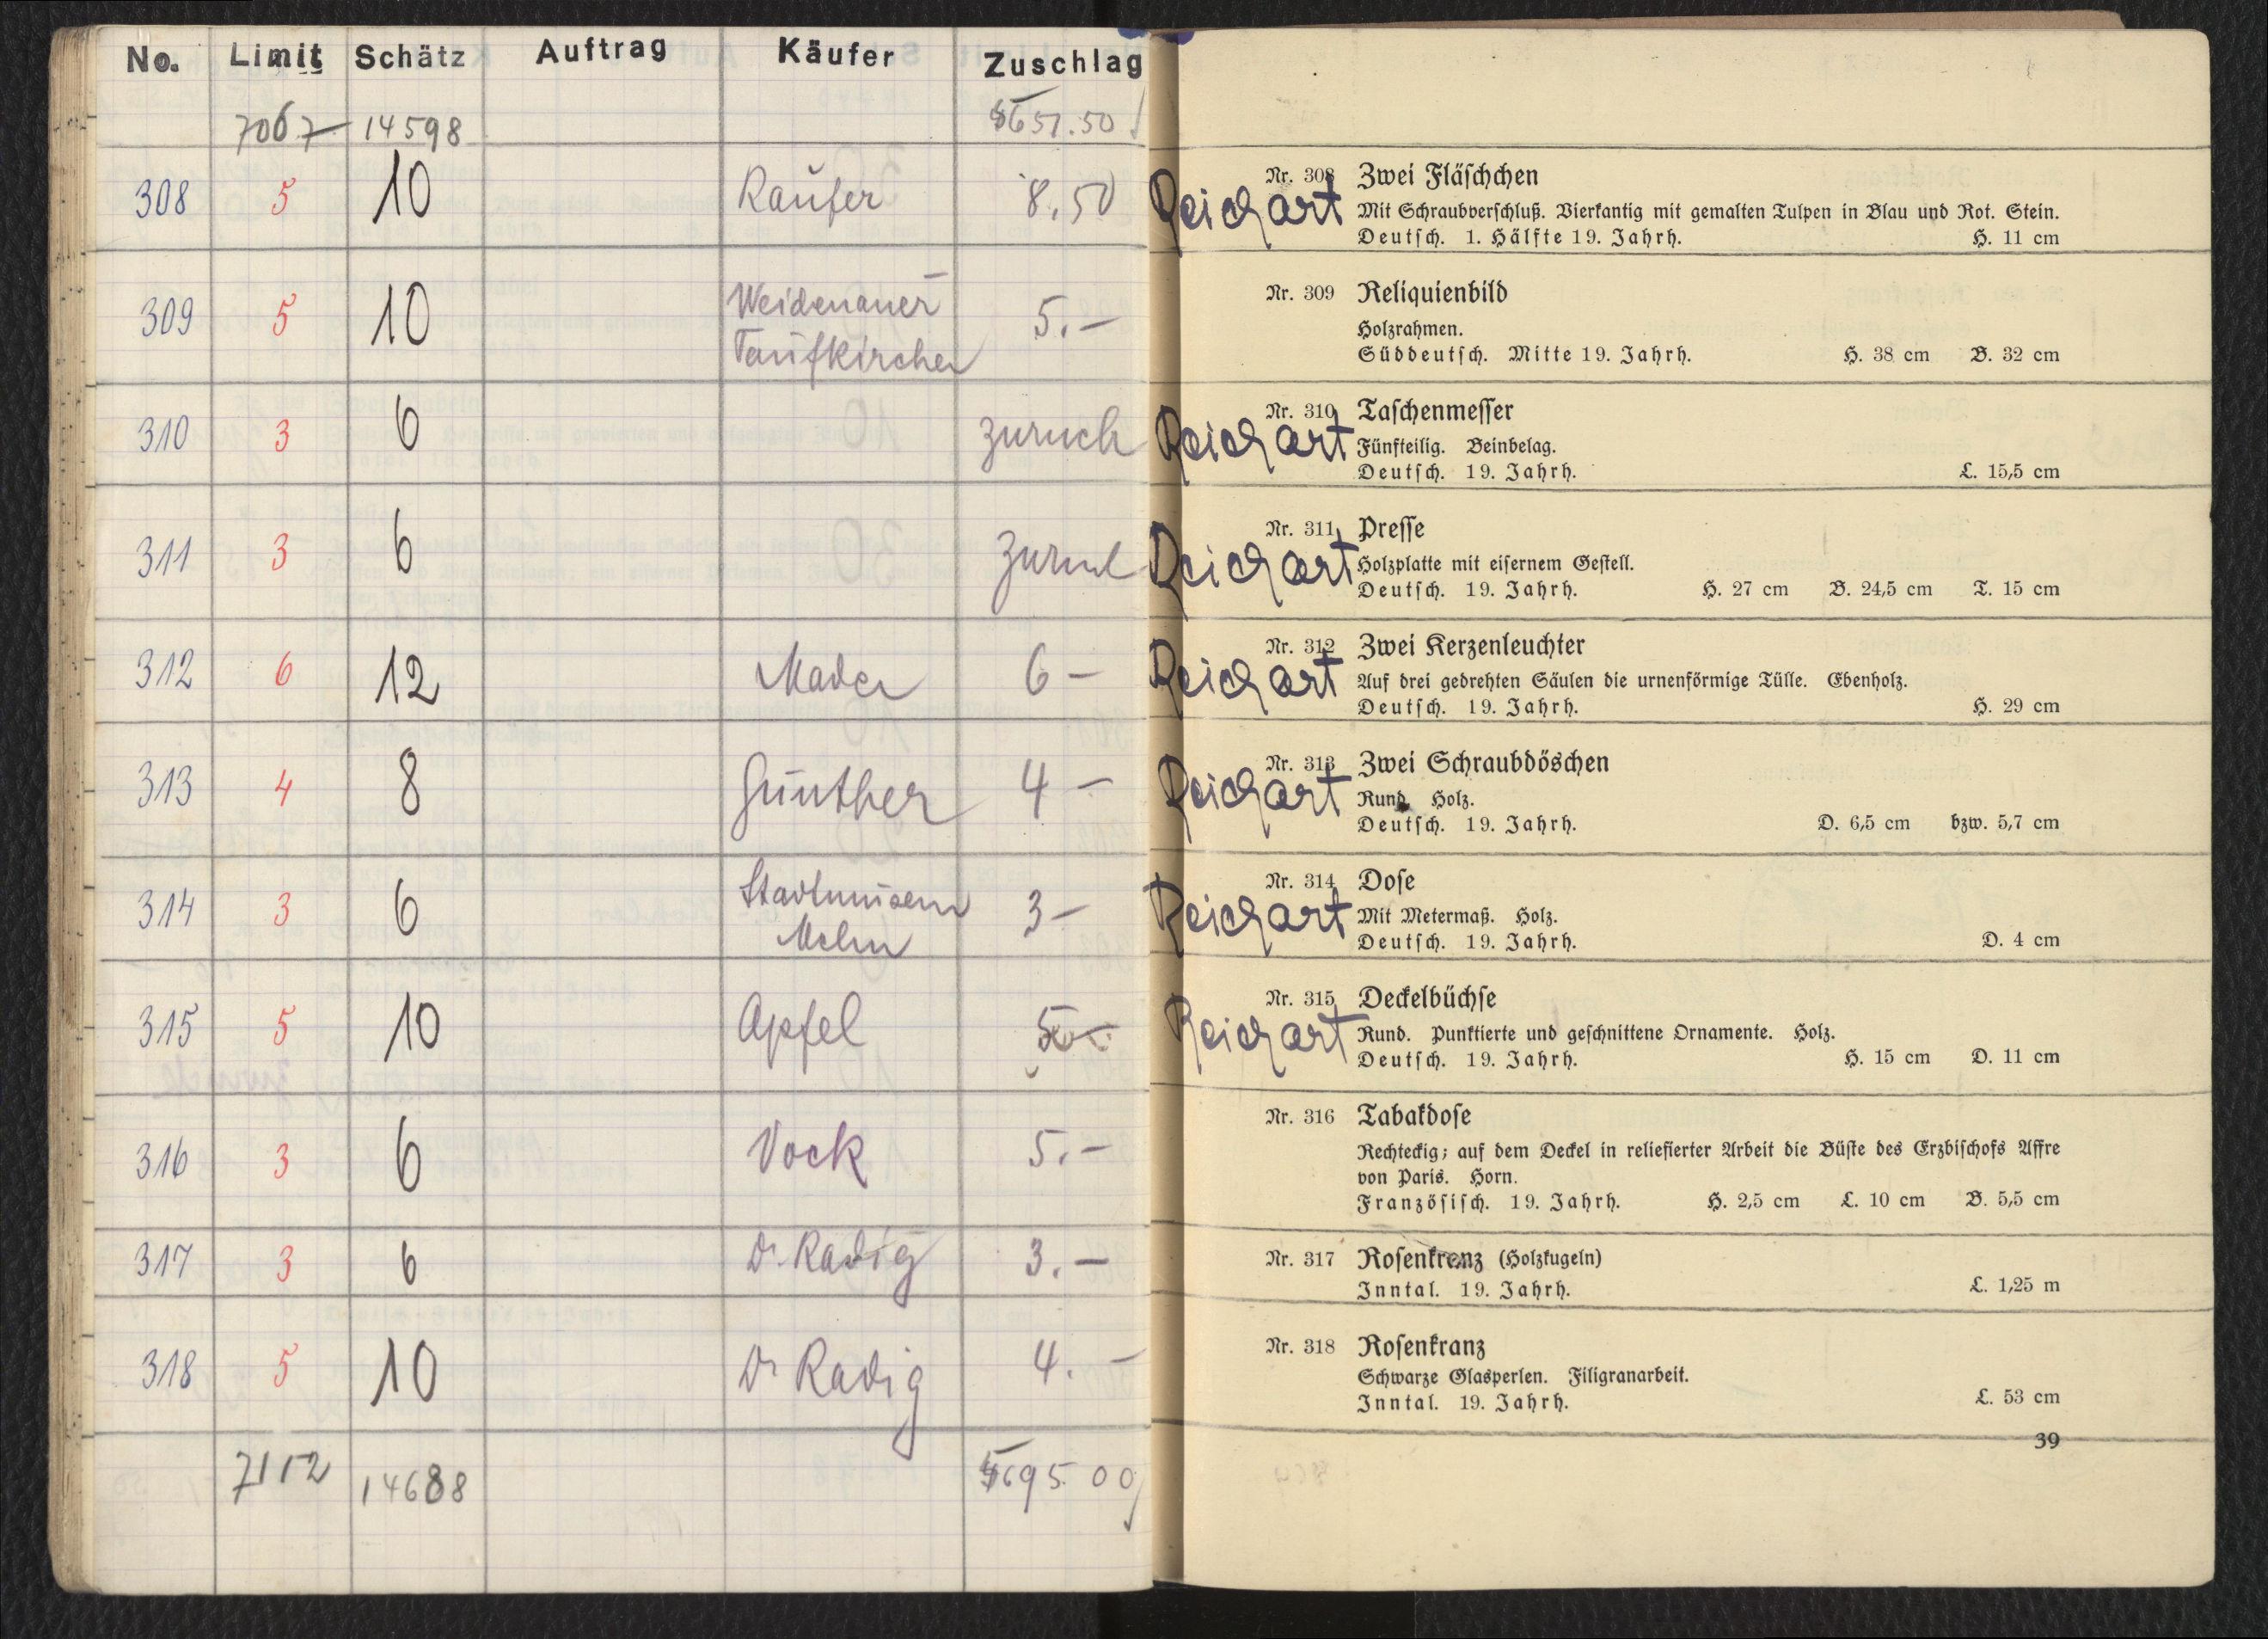 No. Limit Schätz Auftrag Käufer Zuschlag
7067 14598 5651.50
308 5 10 Käufer 8.50
309 5 10 Weidenauer Taufkirchen 5.–
310 3 6 zurück
311 3 6 zurück
312 6 12 Mader 6 –
313 4 8 Günther 4 –
314 3 6 Stadtmuseum 3 –
315 5 10 Apfel
316 3 6 Vock 5.–
317 3 6 Dr. Radig 3.–
318 5 10 Dr Radig 4.–
7112 14688 5695.00
Nr. 308 Zwei Fläſchchen
Reichart Mit Schraubverſchluß. Vierkantig mit gemalten Tulpen in Blau und Rot. Stein.
Deutſch. 1. Hälfte 19. Jahrh. H. 11 cm
Nr. 309 Reliquienbild
Holzrahmen.
Süddeutſch. Mitte 19. Jahrh. H. 38 cm B. 32 cm
Nr. 310 Taſchenmeſſer
Reichart Fünfteilig. Beinbelag.
Deutſch. 19. Jahrh. L. 15,5 cm
Nr. 311 Preſſe
Reichart Holzplatte mit eiſernem Geſtell.
Deutſch. 19. Jahrh. H. 27 cm B. 24,5 cm T. 15 cm
Nr. 312 Zwei Kerzenleuchter
Reichart Auf drei gedrehten Säulen die urnenförmige Tülle. Ebenholz.
Deutſch. 19. Jahrh. H. 29 cm
Nr. 313 Zwei Schraubdöschen
Reichart Rund Holz.
Deutſch. 19. Jahrh. D. 6,5 cm bzw. 5,7 cm
Nr. 314 Doſe
Reichart Mit Metermaß. Holz.
Deutſch. 19. Jahrh. D. 4 cm
Nr. 315 Deckelbüchſe
Reichart Rund. Punktierte und geſchnittene Ornamente. Holz.
Deutſch. 19. Jahrh. H. 15 cm D. 11 cm
Nr. 316 Tabakdoſe
Rechteckig; auf dem Deckel in reliefierter Arbeit die Büſte des Erzbiſchofs Affre
von Paris. Horn.
Franzöſiſch. 19. Jahrh. H. 2,5 cm L. 10 cm B. 5,5 cm
Nr. 317 Roſenkranz (Holzkugeln)
Inntal. 19. Jahrh. L. 1,25 m
Nr. 318 Roſenkranz
Schwarze Glasperlen. Filigranarbeit.
Inntal. 19. Jahrh. L. 53 cm
39